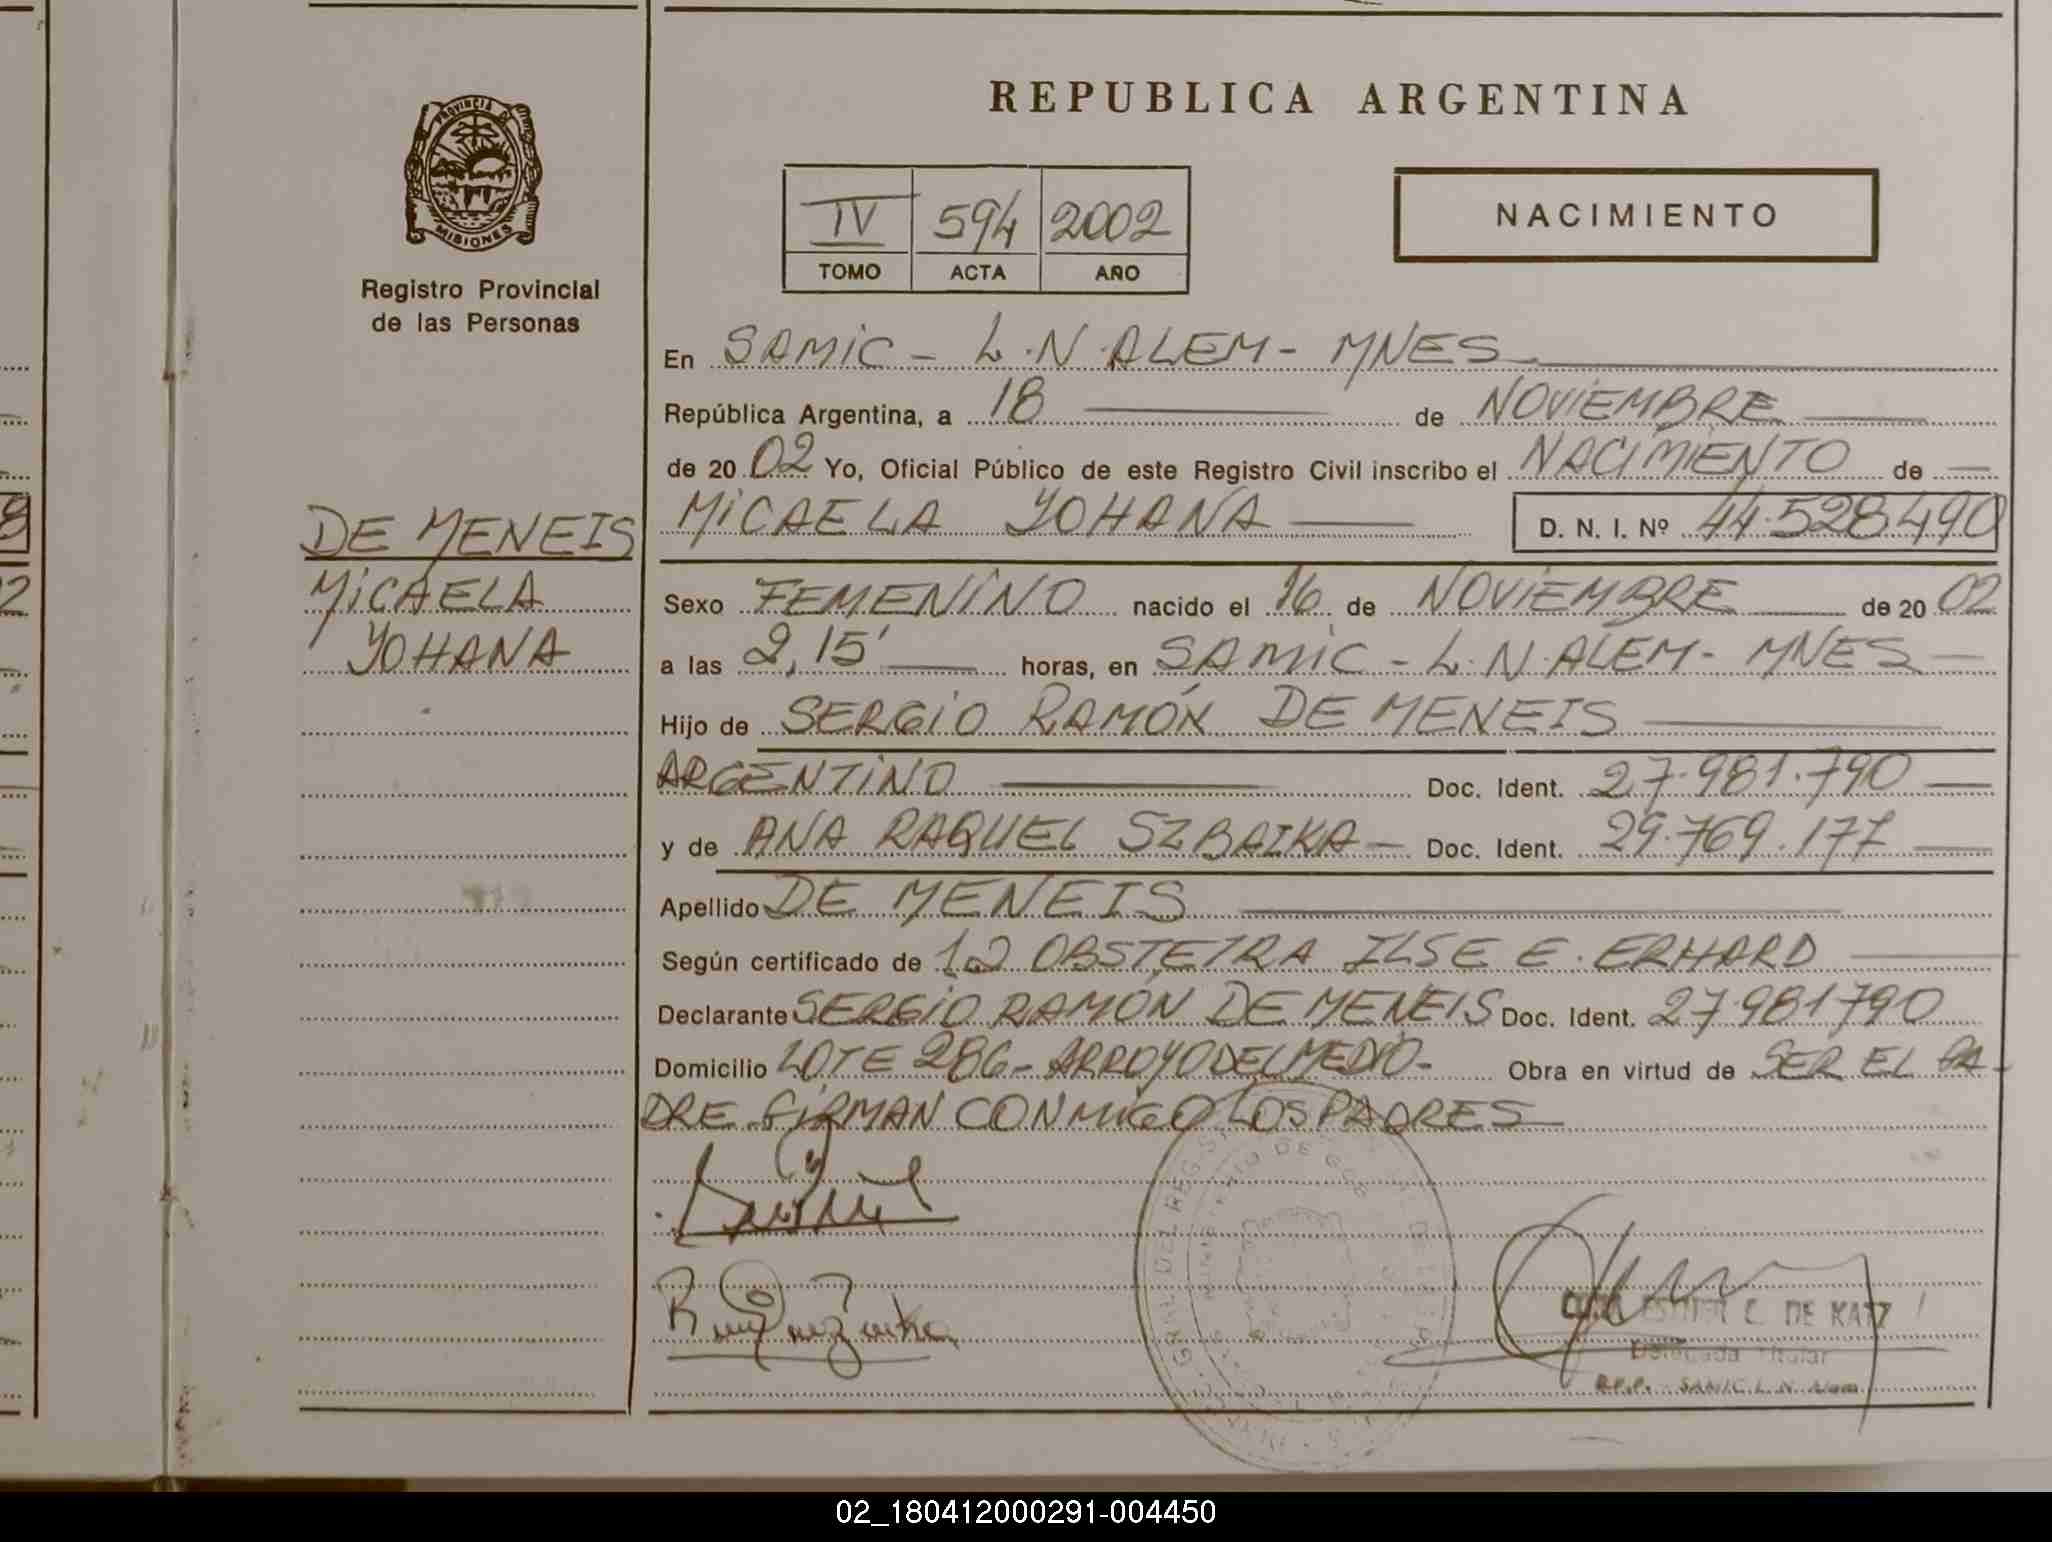 REPUBLICA ARGENTINA
PROVINCIA DE
MISIONES
Registro Provincial
de las Personas
IV 594 2002
TOMO ACTA AÑO
NACIMIENTO
En SAMIC - L.N. ALEM - MNES
República Argentina, a 18 de NOVIEMBRE
de 20 02 Yo, Oficial Público de este Registro Civil inscribo el NACIMIENTO de
DE MENEIS
MICAELA
YOHANA
MICAELA YOHANA D. N. I. Nº 44.528.490
Sexo FEMENINO nacido el 16 de NOVIEMBRE de 20 02
a las 2,15' horas, en SAMIC - L.N. ALEM - MNES
Hijo de SERGIO RAMÓN DE MENEIS
ARGENTINO Doc. Ident. 27.981.790
y de ANA RAQUEL SZBAIKA Doc. Ident. 29.769.177
Apellido DE MENEIS
Según certificado de OBSTETRA ILSE E. ERHARD
Declarante SERGIO RAMÓN DE MENEIS Doc. Ident. 27.981790
Domicilio LOTE 286 - ARROYO DEL MEDIO - Obra en virtud de SER EL PA-
DRE FIRMAN CONMIGO LOS PADRES
ESTHER C. DE KATZ
Delegada Titular
R.P.P. SAMIC L. N. Alem
02_180412000291-004450